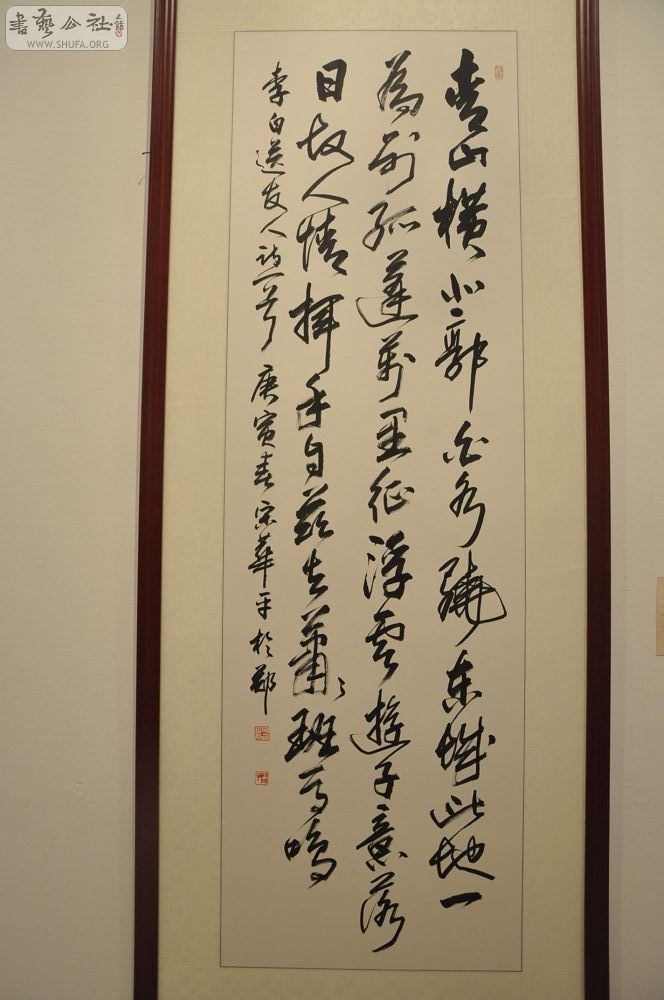 青山橫北郭白水繞東城此地一
為別孤蓬萬里征浮雲遊子意落
日故人情揮手自茲去蕭〻班馬鳴
李白送友人詩一首 庚寅春宋華平於鄭
書藝公社
WWW.SHUFA.ORG